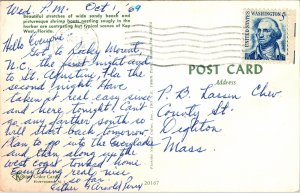 Wed. P.M. Oct 1, '69
beautiful stretches of wide sandy beach and
picturesque shrimp boats nestling snugly in the
harbor are corrupting but typical scenes of Key
West, Florida.
Hello Everyone,
Got to Rocky Mount,
N.C. the first night and
to St. Augustine, Fla the
second night. Have
taken it real easy since
and here tonight! Can't
go any farther south so
will start back tomorrow
Plan to go into the Everglades
and then along up the
west coast toward home
Everything real nice
so far.
Esther &
POST CARD
Address
UNITED STATES POSTAGE
WASHINGTON 5¢
P.B.
County St.
Dighton
Mass.
20167